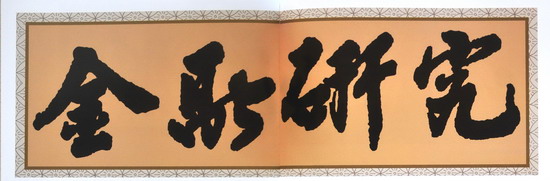 金融研究